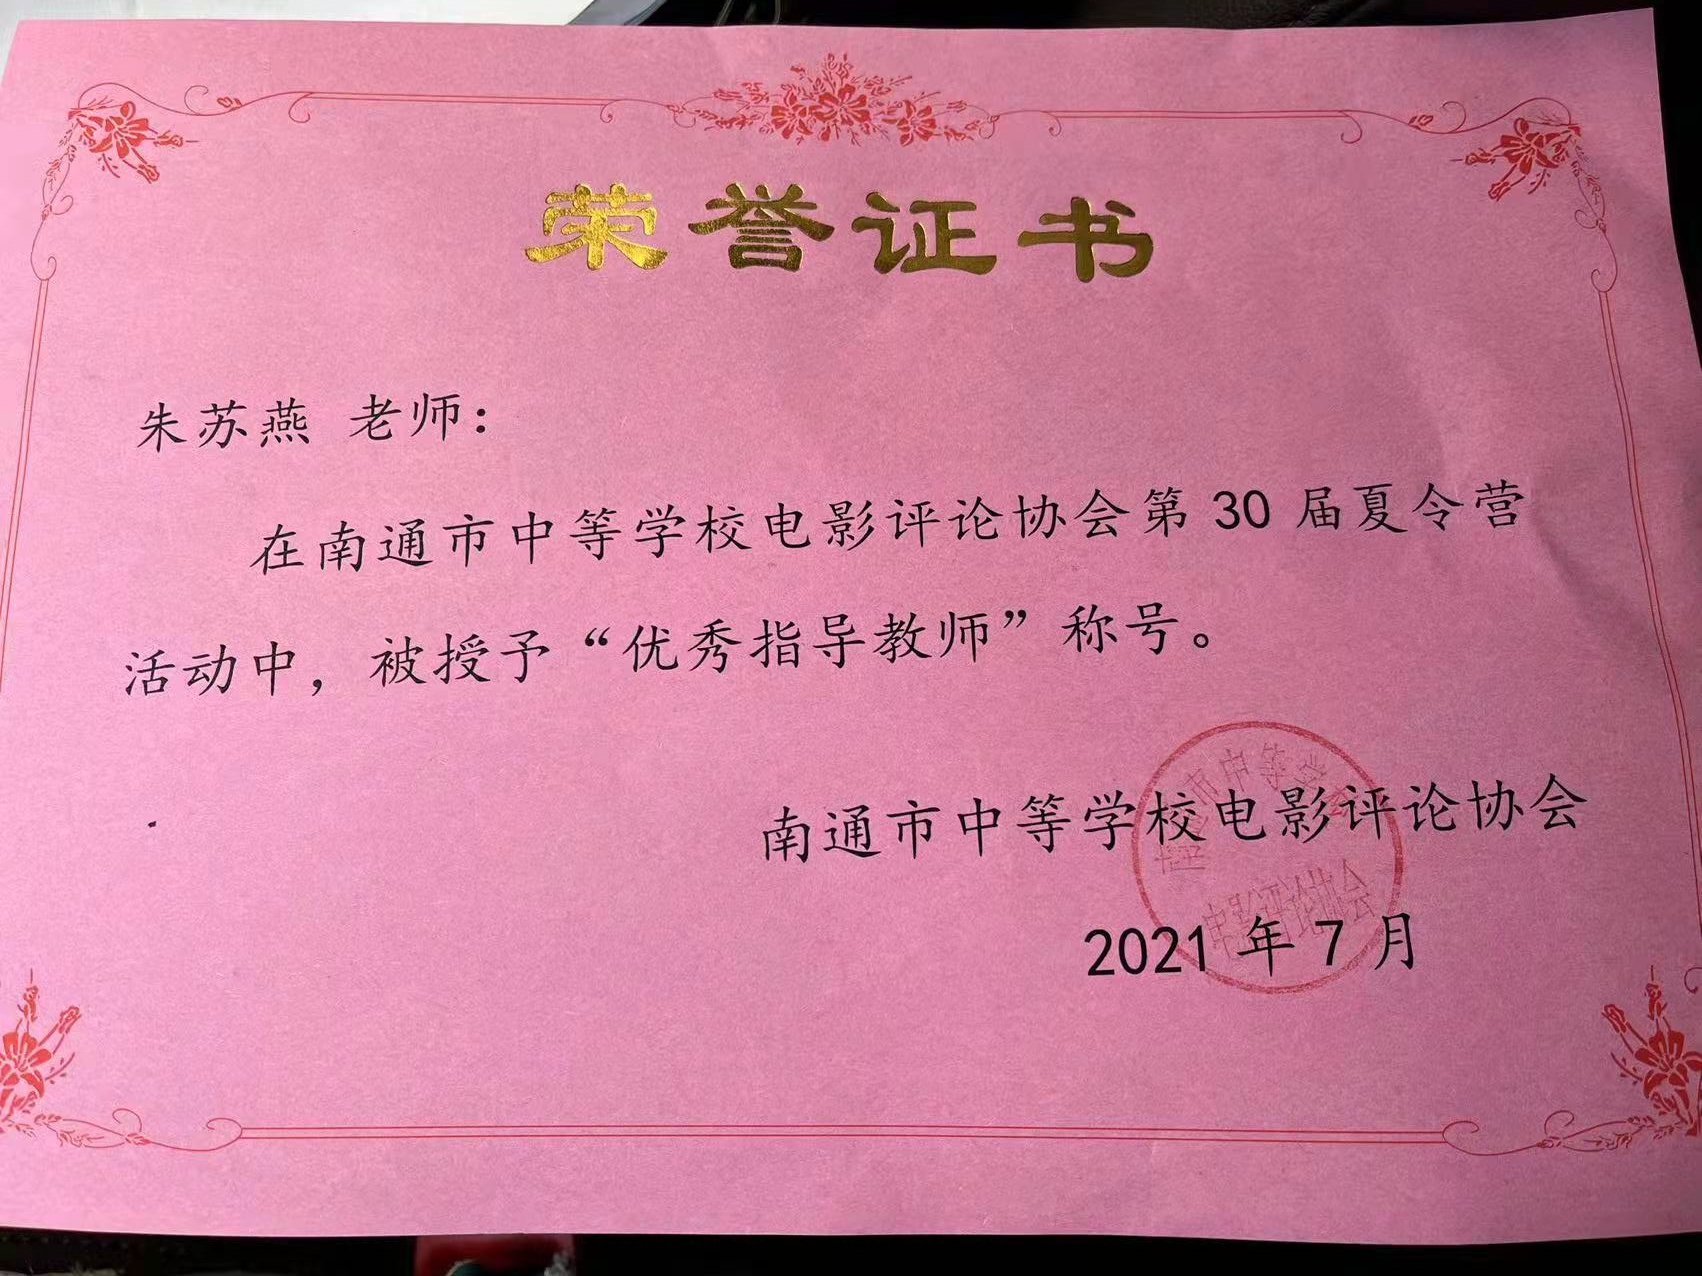 荣誉证书
朱苏燕 老师：
在南通市中等学校电影评论协会第 30 届夏令营
活动中，被授予“优秀指导教师”称号。
南通市中等学校电影评论协会
2021 年 7 月
电影评论协会